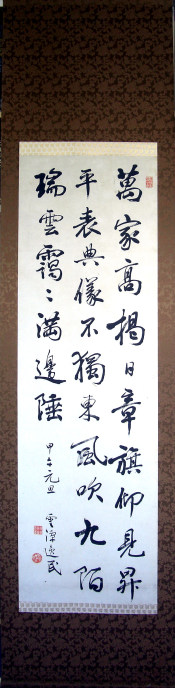 萬家高揭日章旗仰見昇
平表典儀不獨東風吹九陌
瑞雲靄〻滿邊陲
甲午元旦
雲潭逸民